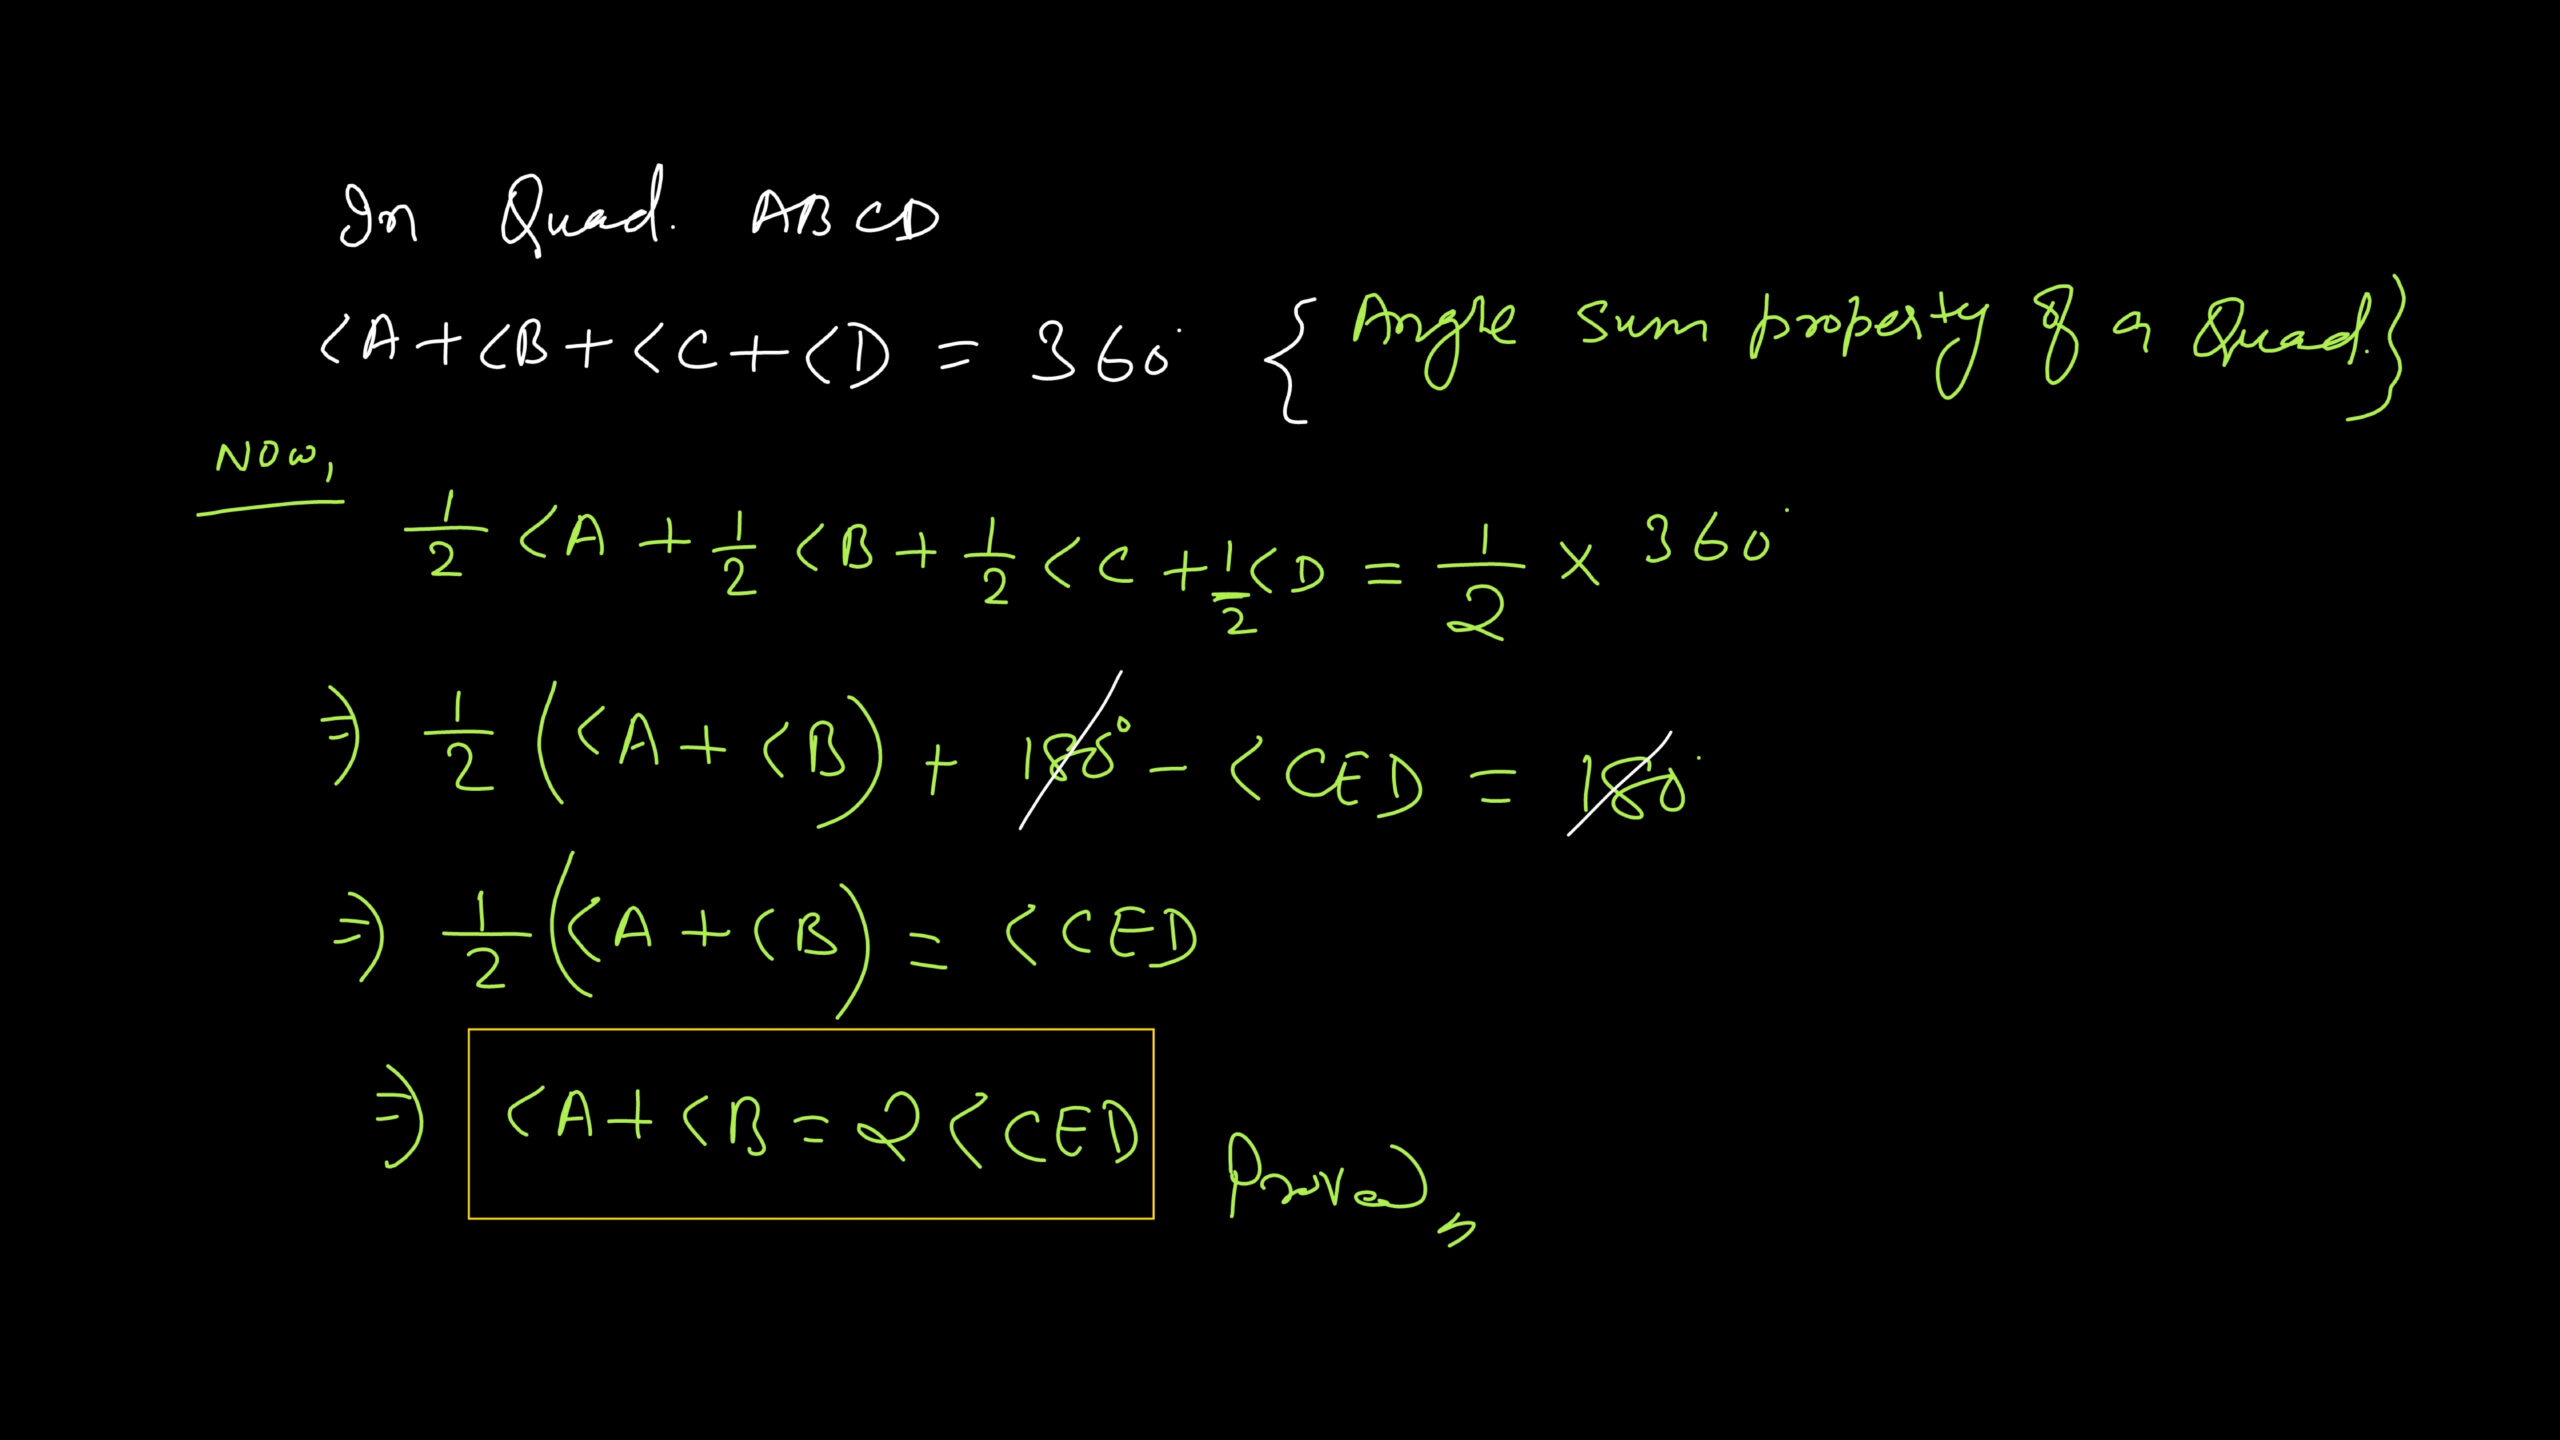 In Quad. ABCD
<A+<B+<C+<D = 360° { Angle sum property of a Quad.}
NOW,
1/2 <A + 1/2 <B + 1/2 <C + 1/2 <D = 1/2 × 360°
⇒ 1/2 (<A + <B) + 180° - <CED = 180°
⇒ 1/2 (<A + <B) = <CED
⇒ <A + <B = 2 <CED Proved